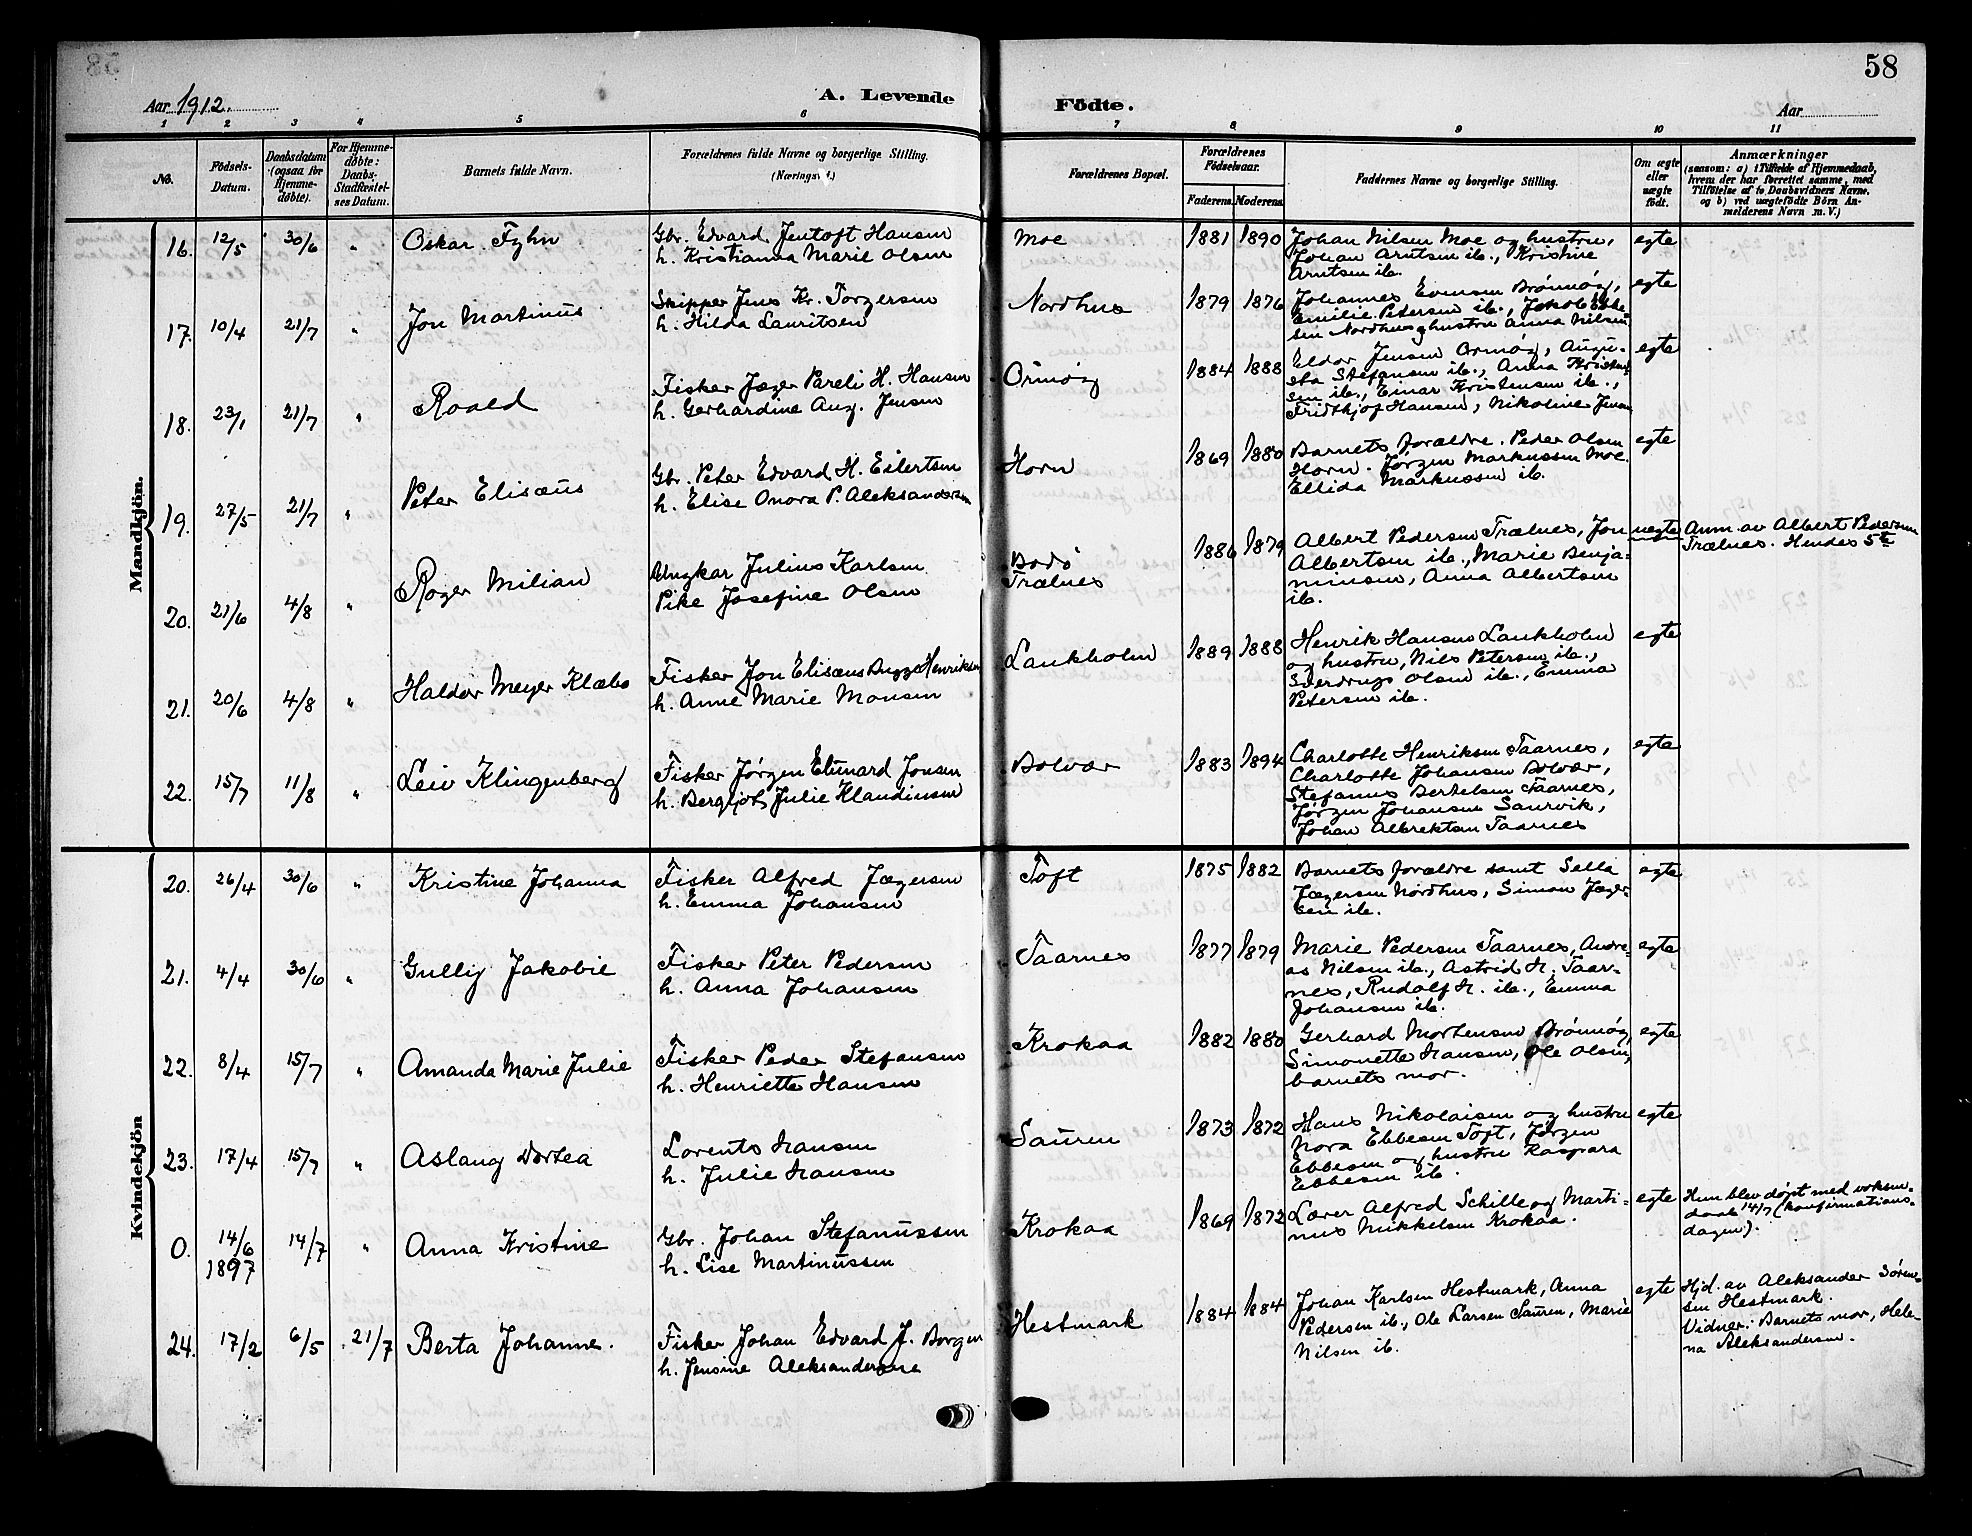 58
Aar 1912.
A. Levende Födte.
Aar
1 2 3 4 5 6 7 8 9 10 11
No.
Födsels-Datum.
Daabsdatum (ogsaa for Hjemme-döbte).
For Hjemme-döbte: Daabs-Stadfæstel-ses Datum.
Barnets fulde Navn.
Forældrenes fulde Navne og borgerlige Stilling. (Næringsvei.)
Forældrenes Bopæl.
Forældrenes Födselsaar.
Faderens. Moderens.
Faddernes Navne og borgerlige Stilling.
Om ægte eller uægte födt.
Anmærkninger
(saasom: a) i Tilfælde af Hjemmedaab, hvem der har forrettet samme, med Tilföielse af to Daabsvidners Navne, og b) ved uægtefödte Börn An-melderens Navn m. V.)
Mandkjön.
16. 12/5 30/6 " Oskar Fyhn
Gbr. Edvard Jentoft Hansen
h. Kristianna Marie Olsen
Moe 1881 1890
Johan Nilsen Moe og hustru,
Johan Arntsen ib., Kristine
Arntsen ib.
egte
17. 10/4 21/7 " Jon Martinus
Skipper Jens Kr. Torgersen
h. Hilda Lauritsen
Nordhus 1879 1876
Johannes Evensen Brønnøy,
Emilie Petersen ib., Jakob
sen Nordhus og hustru Anna Nilsen
egte
18. 23/1 21/7 " Roald
Fisker Jæger Pareli H. Hansen
h. Gerhardine Aug. Jensen
Ormøy 1884 1888
Eldor Jensen Ormøy, Augu-
sta Stefansen ib., Anna Kristen-
sen ib., Einar Kristensen ib.,
Fridthjof Hansen, Nikoline Jensen
egte
19. 27/5 21/7 " Peter Elisæus
Gbr. Peter Edvard H. Eilertsen
h. Elise Onora P. Aleksandersen
Horn 1869 1880
Barnets forældre. Peder Olsen
Horn. Jørgen Markussen Moe.
Ellida Markussen ib.
egte
20. 21/6 4/8 " Roger Milian
Ungkar Julius Karlsen
Pike Josefine Olsen
Bodø
Trælnes
1886 1879
Albert Pedersen Trælnes, Jon
Albertsen ib., Marie Benja-
minsen, Anna Albertsen
ib.
uegte
Anm. av Albert Pedersen
Trælnes. Hendes 5te
21. 20/6 4/8 " Haldor Meyer Klæbo
Fisker Jon Elisæus Bugge Henriksen
h. Anne Marie Monsen
Lankholm 1889 1888
Henrik Hansen Lankholm
og hustru, Nils Petersen ib.,
Sverdrup Olsen ib., Emma
Petersen ib.
egte
22. 15/7 11/8 " Leiv Klingenberg
Fisker Jørgen Edvard Jonsen
h. Bergljot Julie Klaudinsen
Bolvær 1883 1894
Charlotte Henriksen Taarnes,
Charlotte Johansen Bolvær,
Stefanus Bertelsen Taarnes,
Jørgen Johansen Saurvik,
Johan Albrektsen Taarnes
egte
Kvindekjön
20. 26/4 30/6 " Kristine Johanna
Fisker Alfred Jægersen
h. Emma Johansen
Toft 1875 1882
Barnets forældre samt Sella
Jægersen Nordhus, Simon Jæger-
sen ib.
egte
21. 4/4 30/6 " Gully Jakobie
Fisker Peter Pedersen
h. Anna Johansen
Taarnes 1877 1879
Marie Pedersen Taarnes, Andre-
as Nilsen ib., Astrid H. Taar-
nes, Rudolf H. ib., Emma
Johansen ib.
egte
22. 8/4 15/7 " Amanda Marie Julie
Fisker Peder Stefansen
h. Henriette Hansen
Krokaa 1882 1880
Gerhard Mortensen Brønnøy,
Simonette Hansen, Ole Olsen,
barnets mor.
egte
23. 17/4 15/7 " Aslaug Dortea
Lorents Hansen
h. Julie Hansen
Sauren 1873 1872
Hans Nikolaisen og hustru
Nora Ebbesen Toft, Jørgen
Ebbesen og hustru Kaspara
Ebbesen ib.
egte
0. 14/6 1897 14/7 " Anna Kristine
Gbr. Johan Stefanussen
h. Lise Martinussen
Krokaa 1869 1872
Lærer Alfred Schille og Marti-
nus Mikkelsen Krokaa.
egte
Hun blev døpt med voksen-
daab 14/7 (konfirmations-
dagen).
24. 17/2 6/5 21/7 Berta Johanne.
Fisker Johan Edvard J. Borgen
h. Jensine Aleksandersen
Hestmark 1884 1884
Johan Karlsen Hestmark, Anna
Pedersen ib., Ole Larsen Sauren, Marie
Nilsen ib.
egte
Hjd. av Aleksander Søren-
sen Hestmark.
Vidner: Barnets mor, Hele-
na Aleksandersen.